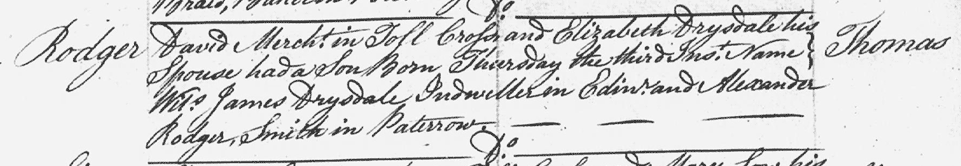 Do
Rodger David Mercht. in Toll Cross and Elizabeth Drysdale his } Thomas
Spouse had a Son Born Thursday the third Inst. Name
Wits. James Drysdale Indweller in Edinr. and Alexander
Rodger, Smith in Paterrow.
Do